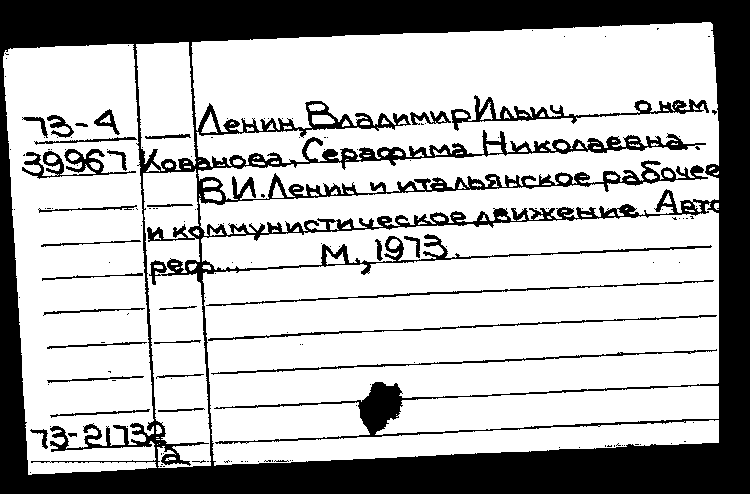 73-4 Ленин, Владимир Ильич, о нем.
39967 Кованова, Серафима Николаевна.
В.И.Ленин и итальянское рабочее
и коммунистическое движение. Авто
реф... М., 1973.
73-21732
2